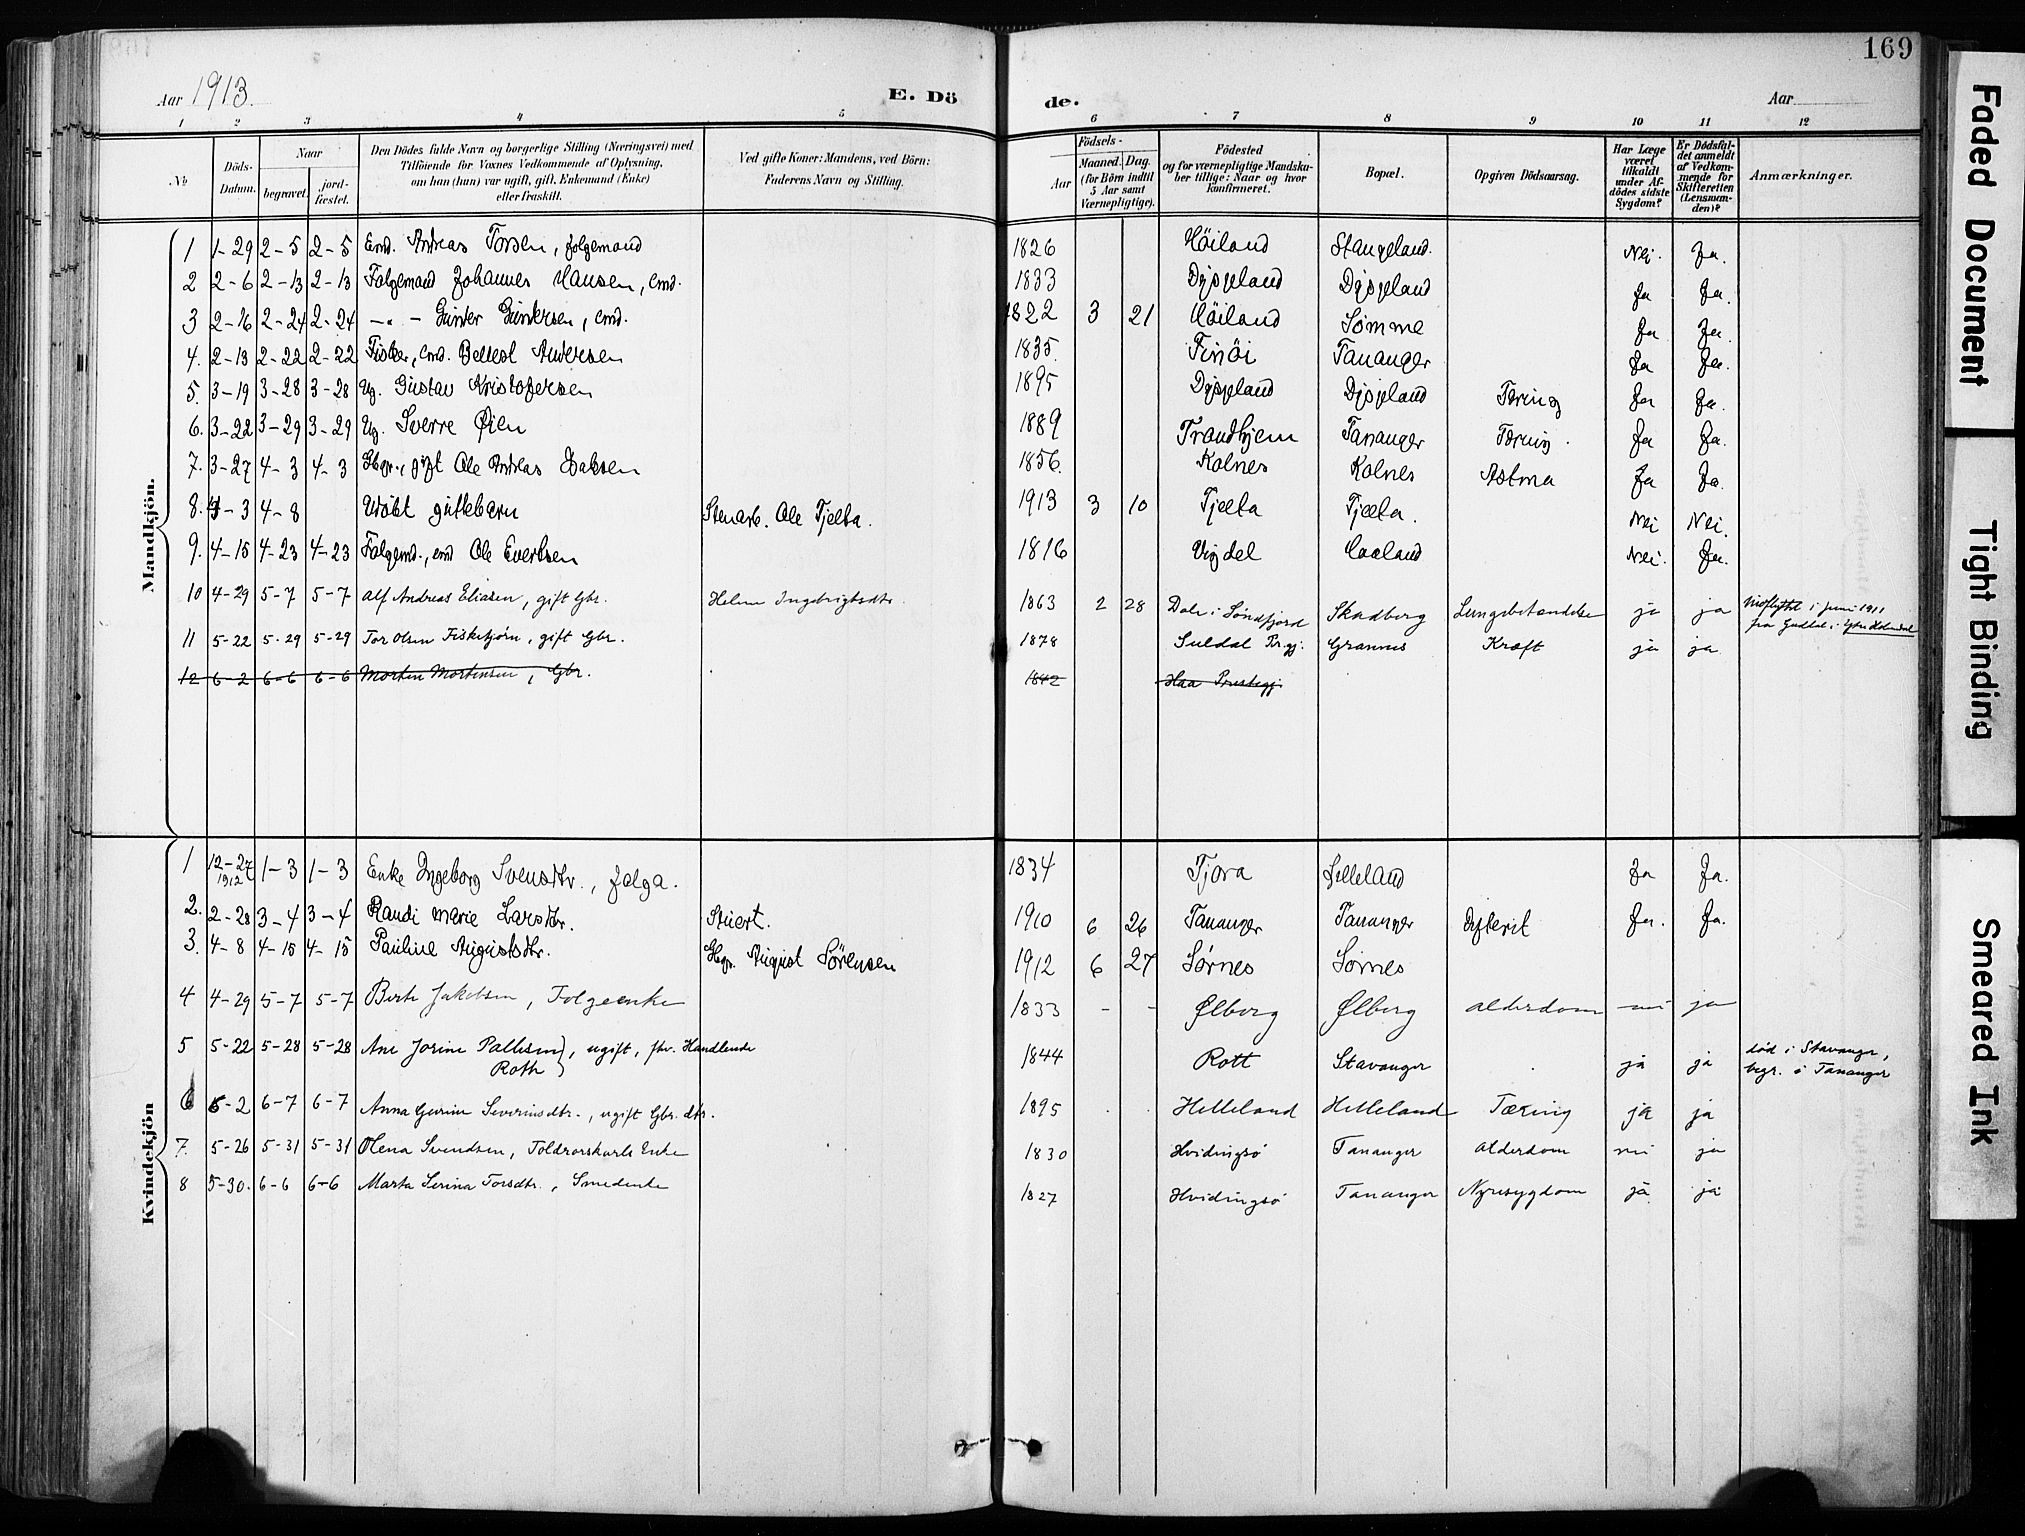 169
Aar 1913.
E. Dö
de.
Aar
1 2 3 4 5 6 7 8 9 10 11 12
No
Döds-Datum.
Naar
begravet.
jord-fæstet.
Den Dödes fulde Navn og borgerlige Stilling (Næringsvei) med
Tilföiende for Voxnes Vedkommende af Oplysning,
om han (hun) var ugift, gift, Enkemand (Enke)
eller fraskilt.
Ved gifte Koner: Mandens, ved Börn:
Faderens Navn og Stilling.
Födsels-
Aar
Maaned. Dag.
(for Börn indtil
5 Aar samt
Værnepligtige).
Födested
og for værnepligtige Mandska-
ber tillige: Naar og hvor
konfirmeret.
Bopæl.
Opgiven Dödsaarsag.
Har Læge
været
tilkaldt
under Af-
dödes sidste
Sygdom?
Er Dödsfal-
det anmeldt
af Vedkom-
mende for
Skifteretten
(Lensman-
den)?
Anmærkninger.
Mandkjön.
1 1-29 2-5 2-5 Emd. Andreas Torsen, folgemand 1826 Höiland Stangeland. Nei. Ja.
2 2-6 2-13 2-13 Folgemand Johannes Hansen, emd. 1833 Dysjeland Dysjeland Ja Ja.
3 2-16 2-24 2-24 -"- Gunder Gundersen, emd. 1822 3 21 Höiland Sømme Ja Ja.
4. 2-13 2-22 2-22 Fisker, emd. Andersen 1835. Finöi Tananger Ja Ja.
5. 3-19 3-28 3-28 Ug. Gustav Kristofersen 1895 Dysjeland Dysjeland Tæring Ja Ja.
6. 3-22 3-29 3-29 Ug. Sverre Øien 1889 Trondhjem Tananger Tæring. Ja Ja.
7. 3-27 4-3 4-3 Gbr., gift Ole Andreas Isaksen 1856. Kolnes Kolnes Astma Ja Ja.
8. 4-3 4-8 Udöbt guttebarn Stenarb. Ole Tjelta. 1913 3 10 Tjelta Tjelta. Nei Nei.
9. 4-15 4-23 4-23 Folgemd., emd Ole Evertsen 1816 Vigdel Nei. Ja.
10 4-29 5-7 5-7 Alf Andreas Eliasen, gift Gbr. Helene Ingebrigtsdtr. 1863 2 28 Dale i Söndfjord Skadberg Lungebetændelse ja ja Indflyttet i juni 1911
fra
11 5-22 5-29 5-29 Tor Olsen Fisketjörn, gift Gbr. 1878 Suldal Pr.gj. Grannes Kræft ja ja
12 6-2 6-6 6-6 Morten Mortensen, Gbr. 1842 Haa Prestegj.
Kvindekjön
1 12-27 1912 1-3 1-3 Enke Ingeborg Svensdtr., folga. 1834 Tjora Helleland Ja Ja.
2. 2-28 3-4 3-4 Randi Marie Larsdtr. Stuert. 1910 6 26 Tananger Tananger Dyfterit Ja. Ja.
3. 4-8 4-15 4-15 Pauline Augustsdtr. Gbr. August Sörensen 1912 6 27 Sörnes Sörnes
4 4-29 5-7 5-7 Berte Jakobsen, Folgeenke 1833 - - Ølberg Ølberg alderdom nei ja
5 5-22 5-28 5-28 Ane Jorine Pallesen, ugift, fhv. Handlende 1844 Rott Stavanger ja ja död i Stavanger,
Roth begr. i Tananger
6 6-2 6-7 6-7 Anna Gurine Severinsdtr., ugift Gbr. dtr. 1895 Helleland Helleland Tæring ja ja
7. 5-26 5-31 5-31 Olena Svendsen, Toldrorskarls Enke 1830 Hvidingsö Tananger alderdom nei ja
8 5-30. 6-6 6-6 Marta Serina Torsdtr., Smedenke 1827 Hvidingsö Tananger Nyresygdom ja ja
Faded Document
Tight Binding
Smeared Ink